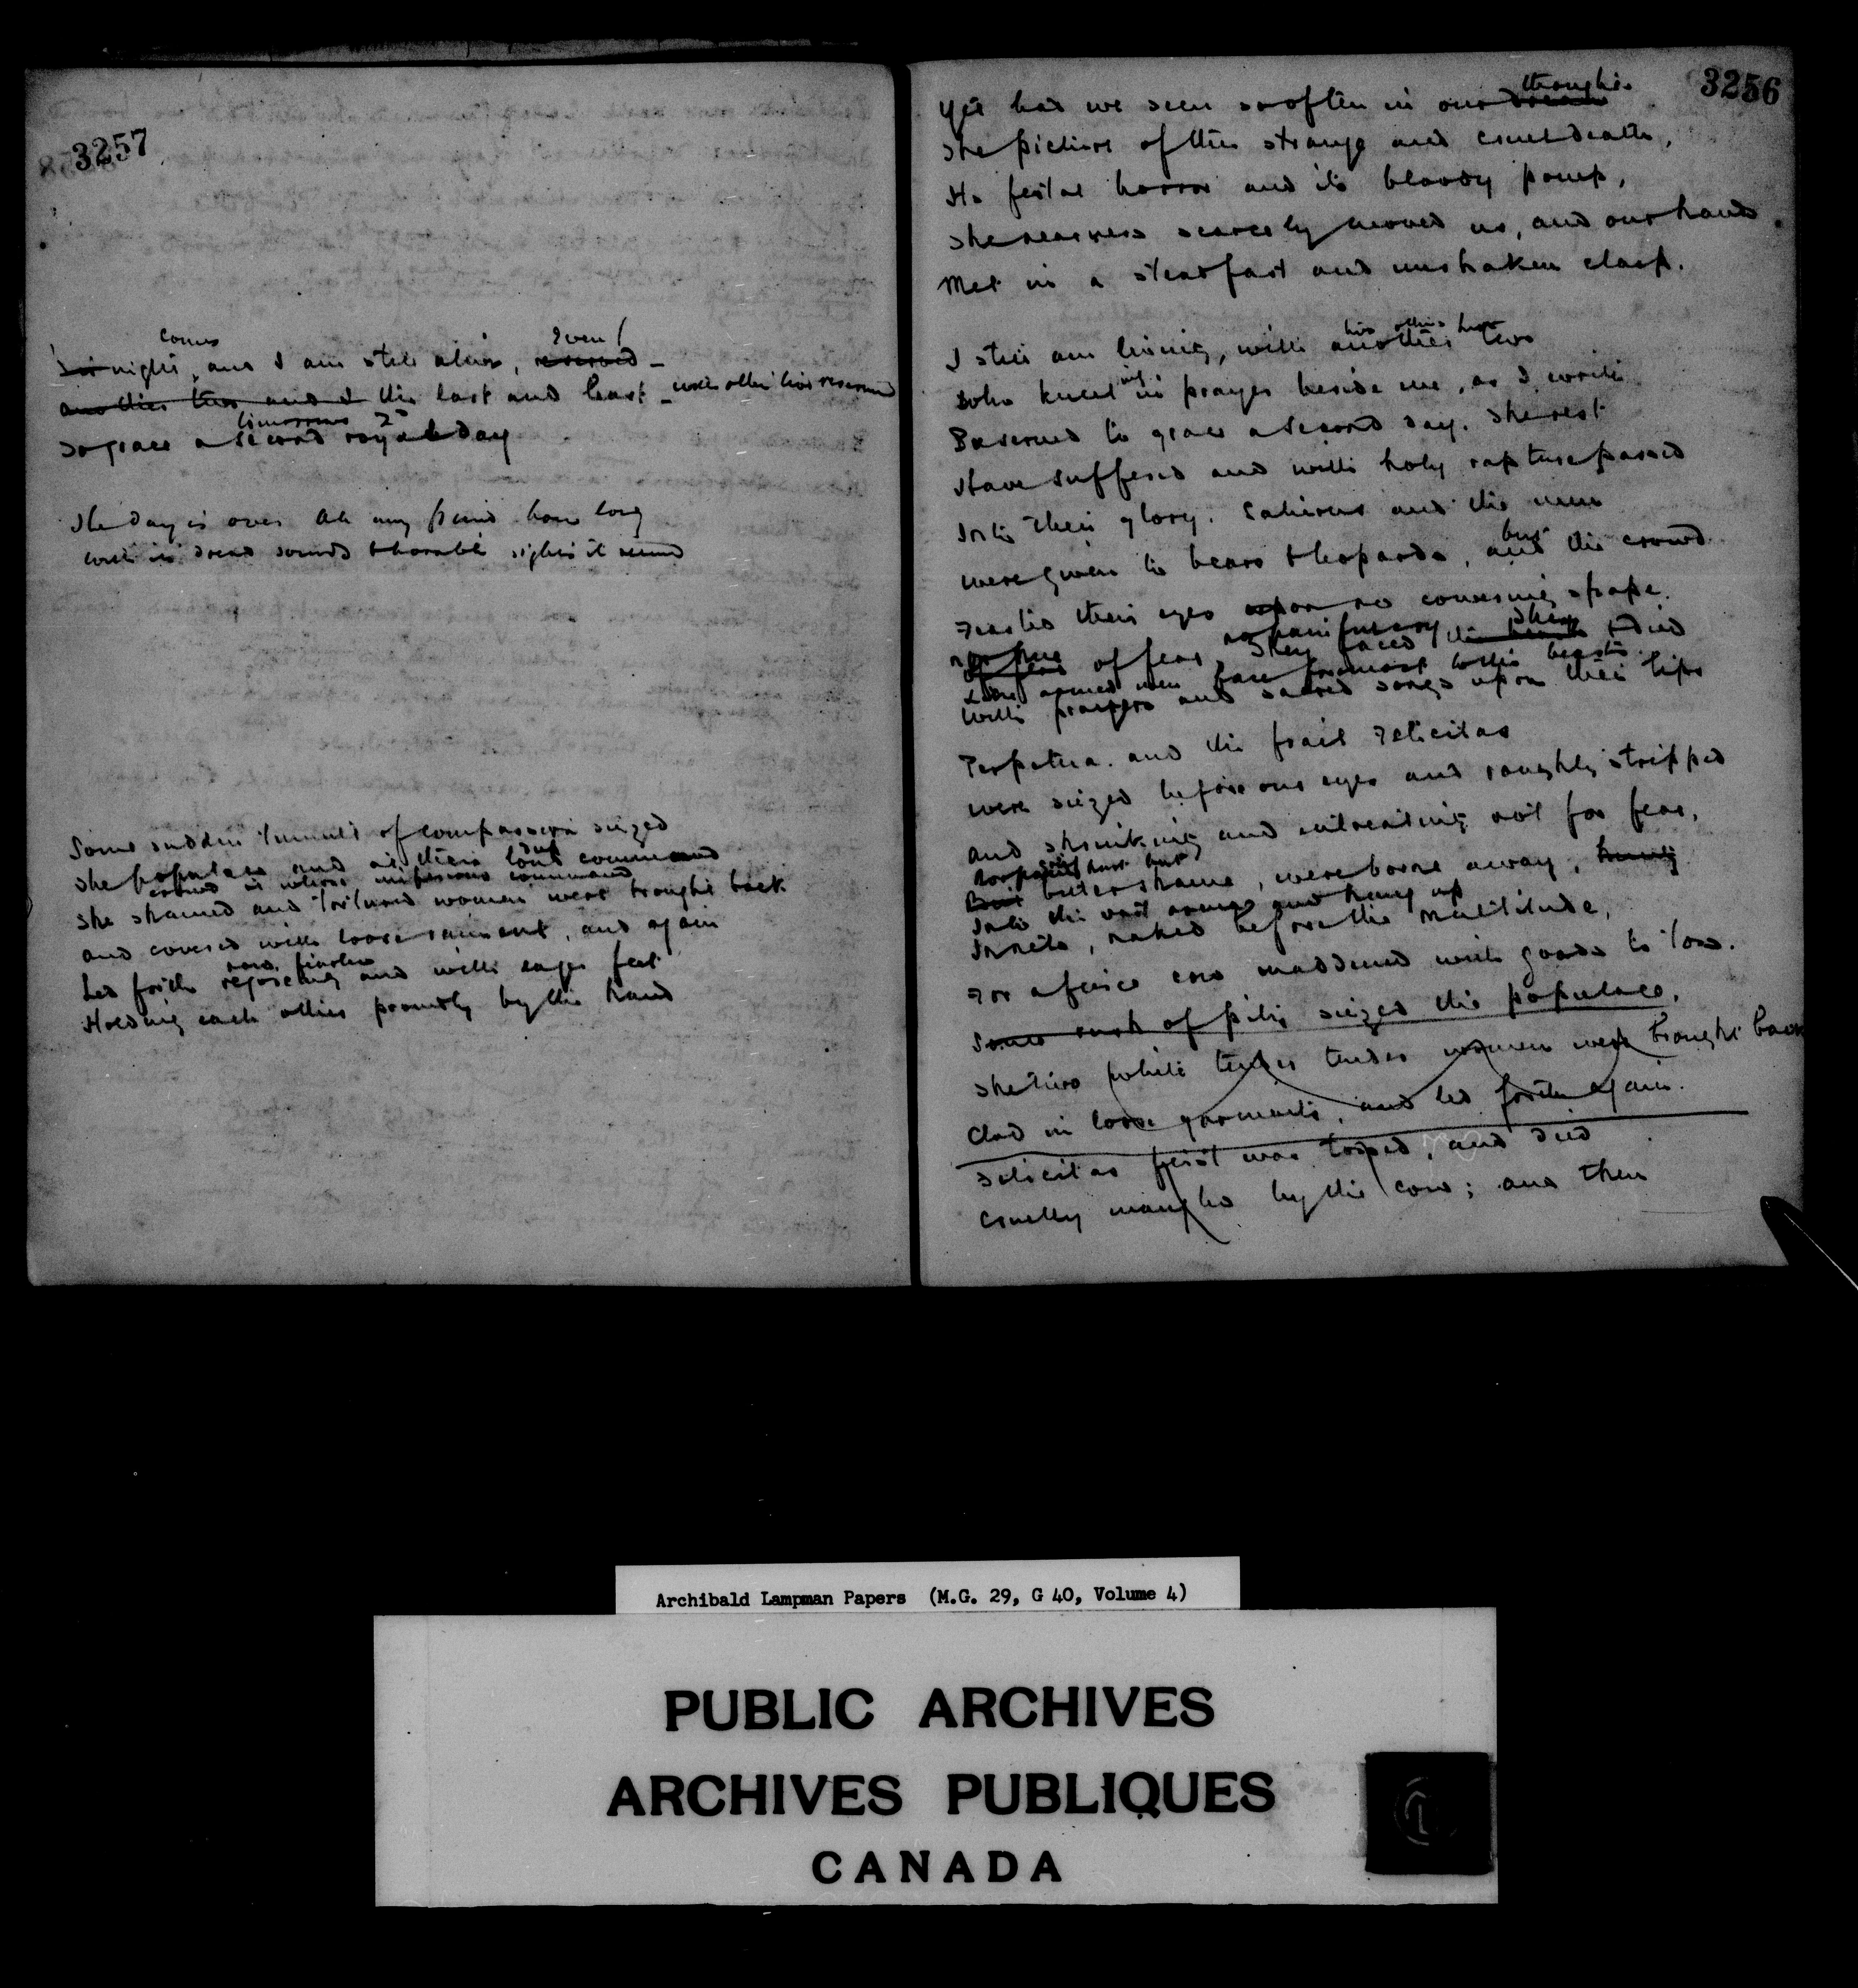 3257
comes Even I
Tis night, and I am still alive, reserved –
another two and I the last and least – with other two reserved
tomorrow
To grace a second royal day
The day is over Ah my friend how long
With its dread sounds & horrible sights it seemed
Some sudden tumult of compassion seized
The populace and at their loud command
crowd at whose imperious command
The shamed and tortured women were brought back
And covered with loose raiment, and again
Led forth rejoicing and with eager feet
Holding each other proudly by the hand
3256
thoughts
Yet had we seen so often in our dreams
The picture of this strange and cruel death,
Its festal horror and its bloody pomp,
The nearness scarcely moved us, and our hands
Met in a steadfast and unshaken clasp.
two others here
I still am living, with another two
Who kneel in prayer beside me, as I write
Reserved to grace a second day. The rest
Have suffered and with holy rapture passed
Into their glory. Saturus and the men
but
Were given to bears & leopards, and the crowd
Feasted their eyes upon no cowering shape.
of fear, They faced the beasts & died
armed men face foremost to the beasts
With prayers and sacred songs upon their lips
Perpetua. and the frail Felicitas
Were seized before our eyes and roughly stripped
And shrinking and entreating not for fear,
Nor yet for hurt but
But bitter shame, were borne away, hung
Into the vast arena and hung up
In nets, naked before the multitude,
For a fierce cow maddened with goads to toss.
Some rush of pity seized the populace,
The two white tender women were brought back
Clad in loose garments, and led forth again.
Felicitas first was tossed, and died
Cruelly mangled by the cow; and then
Archibald Lampman Papers (M.G. 29, G 40, Volume 4)
PUBLIC ARCHIVES
ARCHIVES PUBLIQUES
CANADA